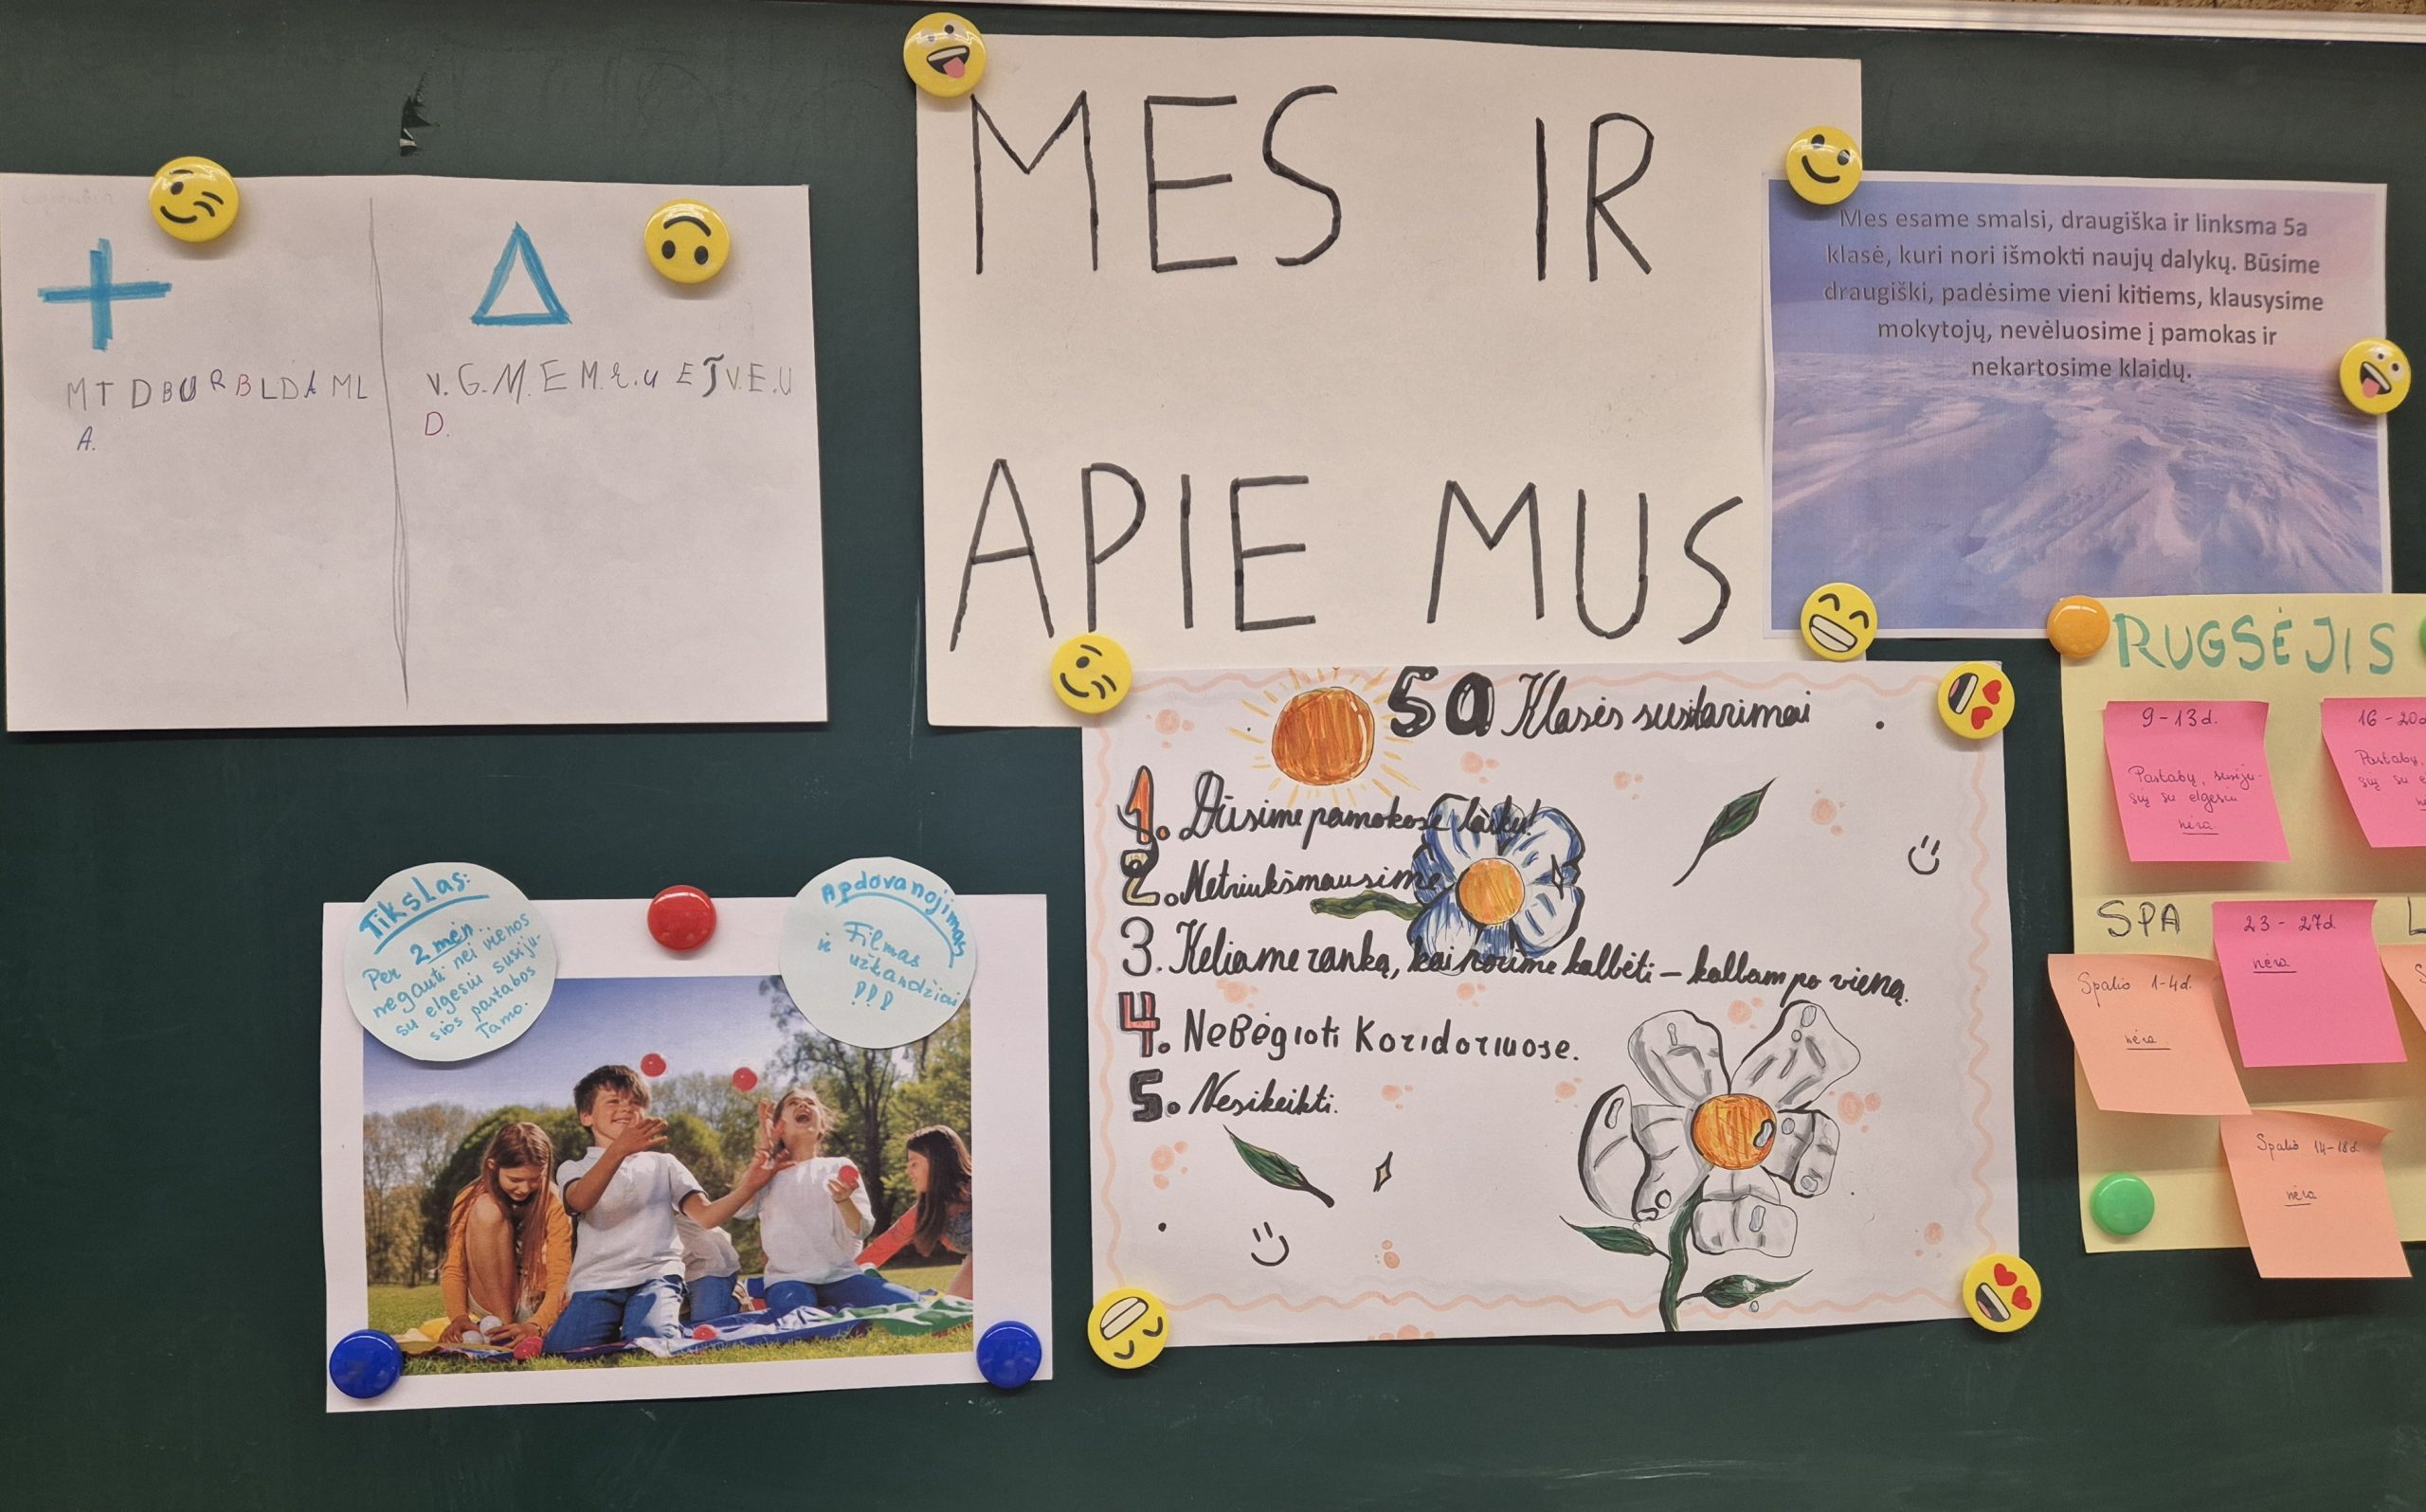 MTDBURBLDAML
A.
V.G.M.E M.R.U E J V.E.U
D.
MES IR
APIE MUS
Mes esame smalsi, draugiška ir linksma 5a
klasė, kuri nori išmokti naujų dalykų. Būsime
draugiški, padėsime vieni kitiems, klausysime
mokytojų, nevėluosime į pamokas ir
nekartosime klaidų.
Tikslas:
Per 2 mėn.
negauti nei vienos
su elgesiu susiju-
sios pastabos
Tamo.
Apdovanojimas
Filmas
ir užkandžiai
!!!
5a Klasės susitarimai
1. Būsime pamokose laiku!
2. Netriukšmausime
3. Keliame ranką, kai norime kalbėti – kalbam po vieną.
4. NeBėgioti Koridoriuose.
5. Nesikeikti.
RUGSĖJIS
9-13d.
Pastabų, susiju-
sių su elgesiu
nėra
16-20d
Pastabų,
sių su e
SPA
23-27d
nėra
Spalio 1-4d.
nėra
Spalio 14-18d.
nėra